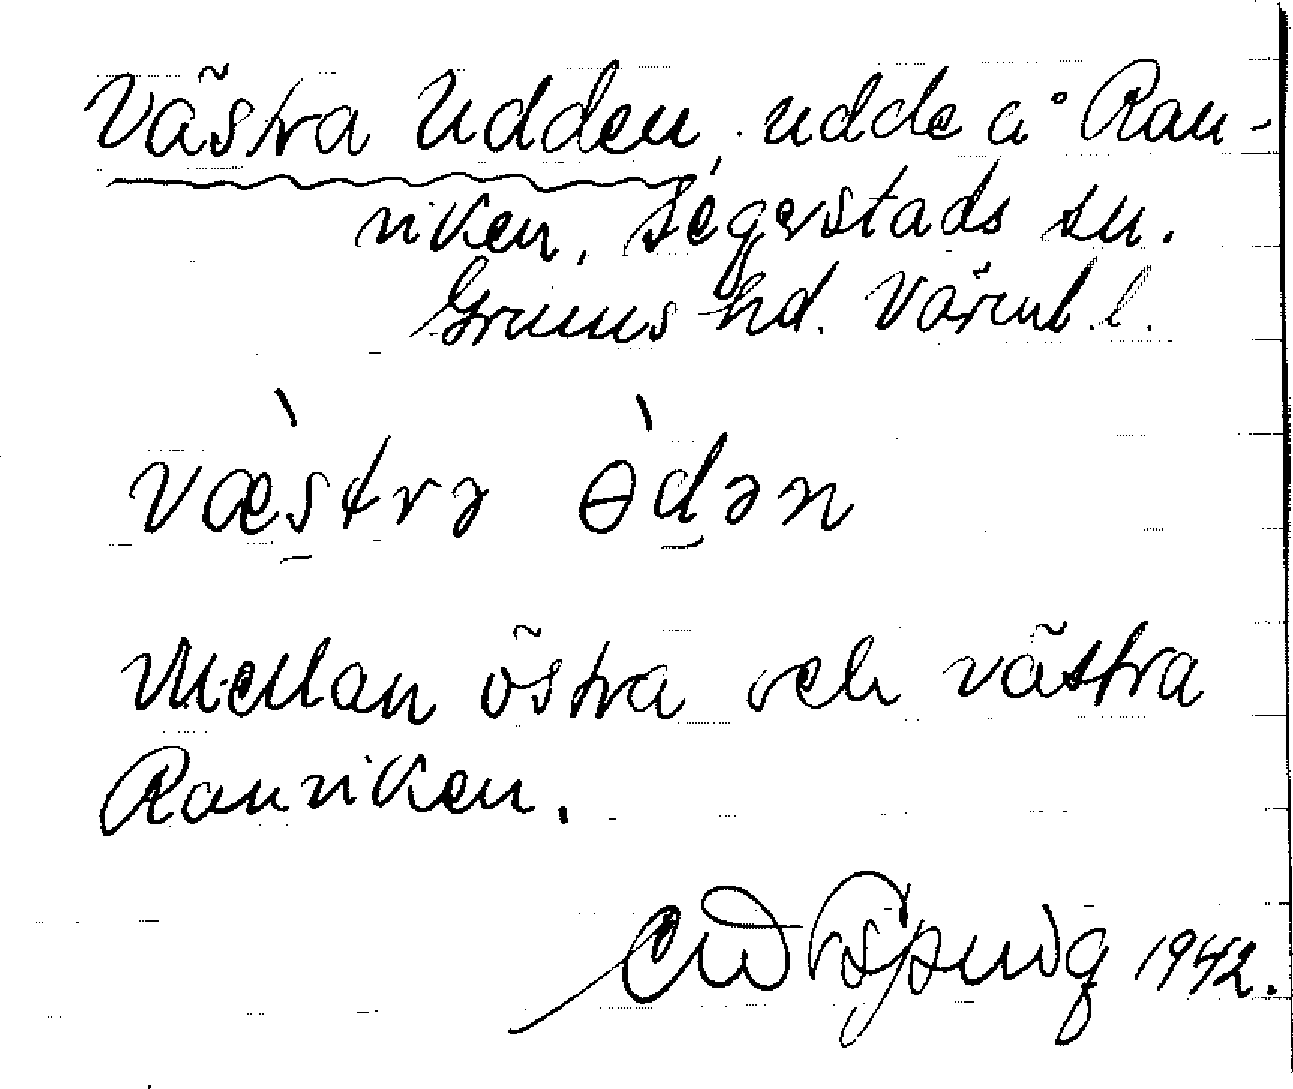 Västra Udden, udde å Ran-
viken, Segerstads sn.
Grums hd. Värml. l.
væstrə ödən
Mellan östra och västra
Ranviken.
1942.